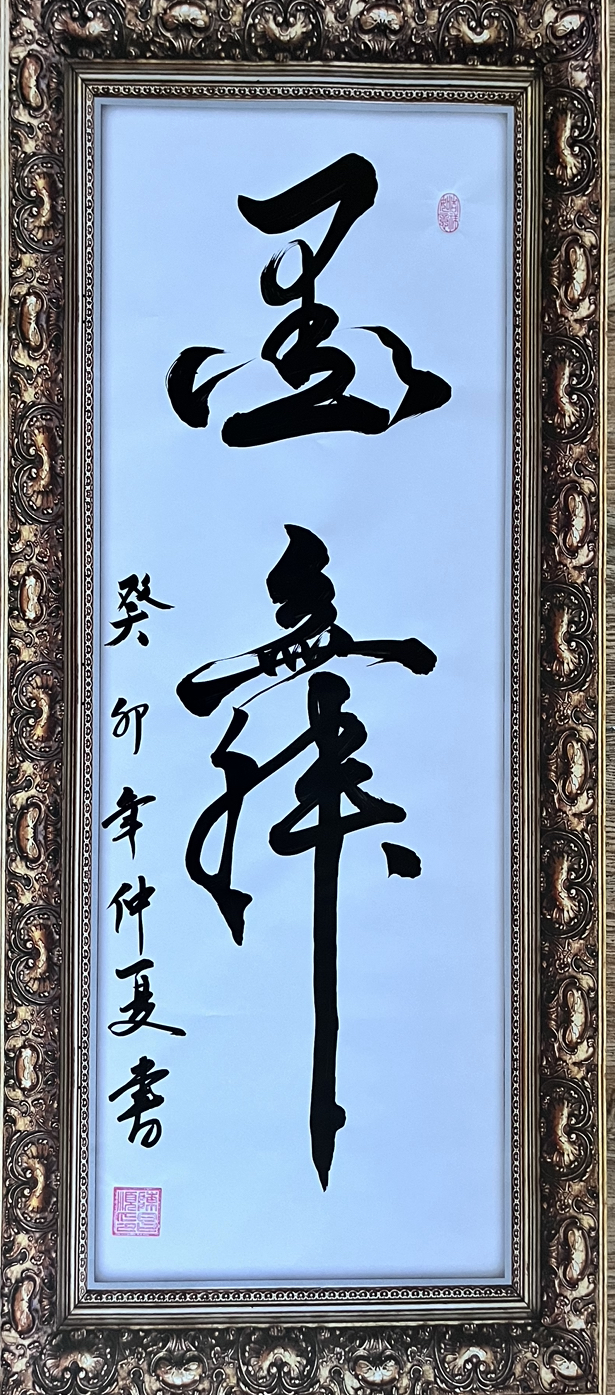 墨舞
癸卯年仲夏書